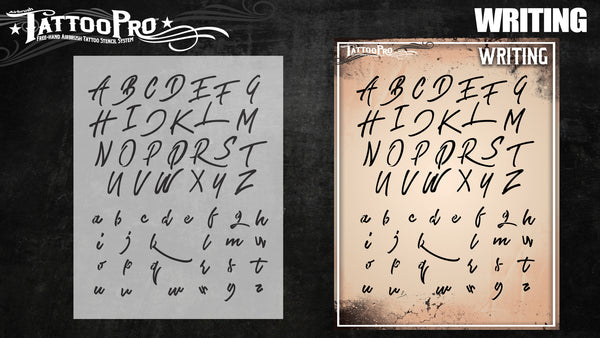 Airbrush
TATTOOPRO
FREE-HAND AIRBRUSH TATTOO STENCIL SYSTEM
WRITING
A B C D E F G
H I J K L M
N O P Q R S T
U V W X Y Z
a b c d e f g h
i j k l m n
o p q r s t
u v w x y z
TATTOOPRO
WRITING
A B C D E F G
H I J K L M
N O P Q R S T
U V W X Y Z
a b c d e f g h
i j k l m n
o p q r s t
u v w x y z